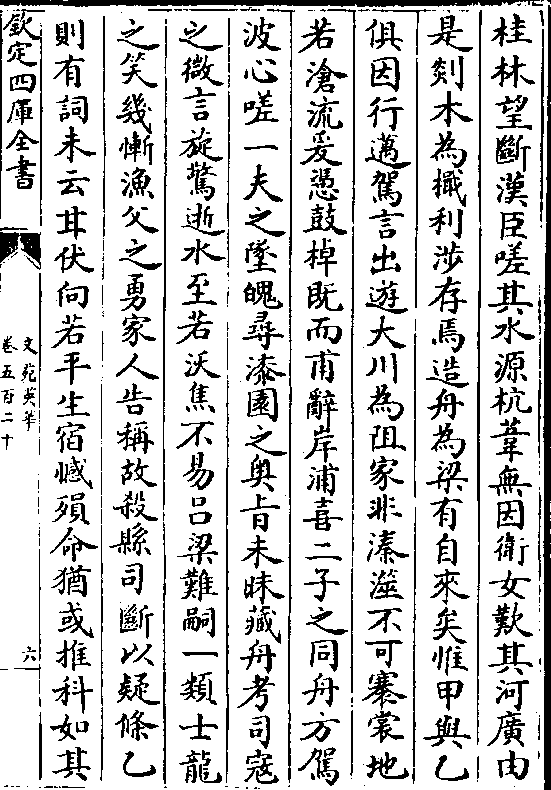 桂林望斷漢臣嗟其水源杭葦無因衛女歎其河廣由
是剡木為檝利涉存焉造舟為梁有自來矣惟甲與乙
俱因行邁駕言出遊大川為阻家非溱洧不可褰裳地
若滄流爰憑鼓棹既而甫辭岸浦喜二子之同舟方駕
波心嗟一夫之墜魄尋漆園之奥旨未昧藏舟考司宼
之微言旋驚逝水至若沃焦不易吕梁難嗣一類士龍
之笑幾慚漁父之勇家人告稱故殺縣司斷以疑條乙
則有詞未云甘伏向若平生宿憾殞命猶或推科如其
欽定四庫全書
文苑英華
卷五百二十
六